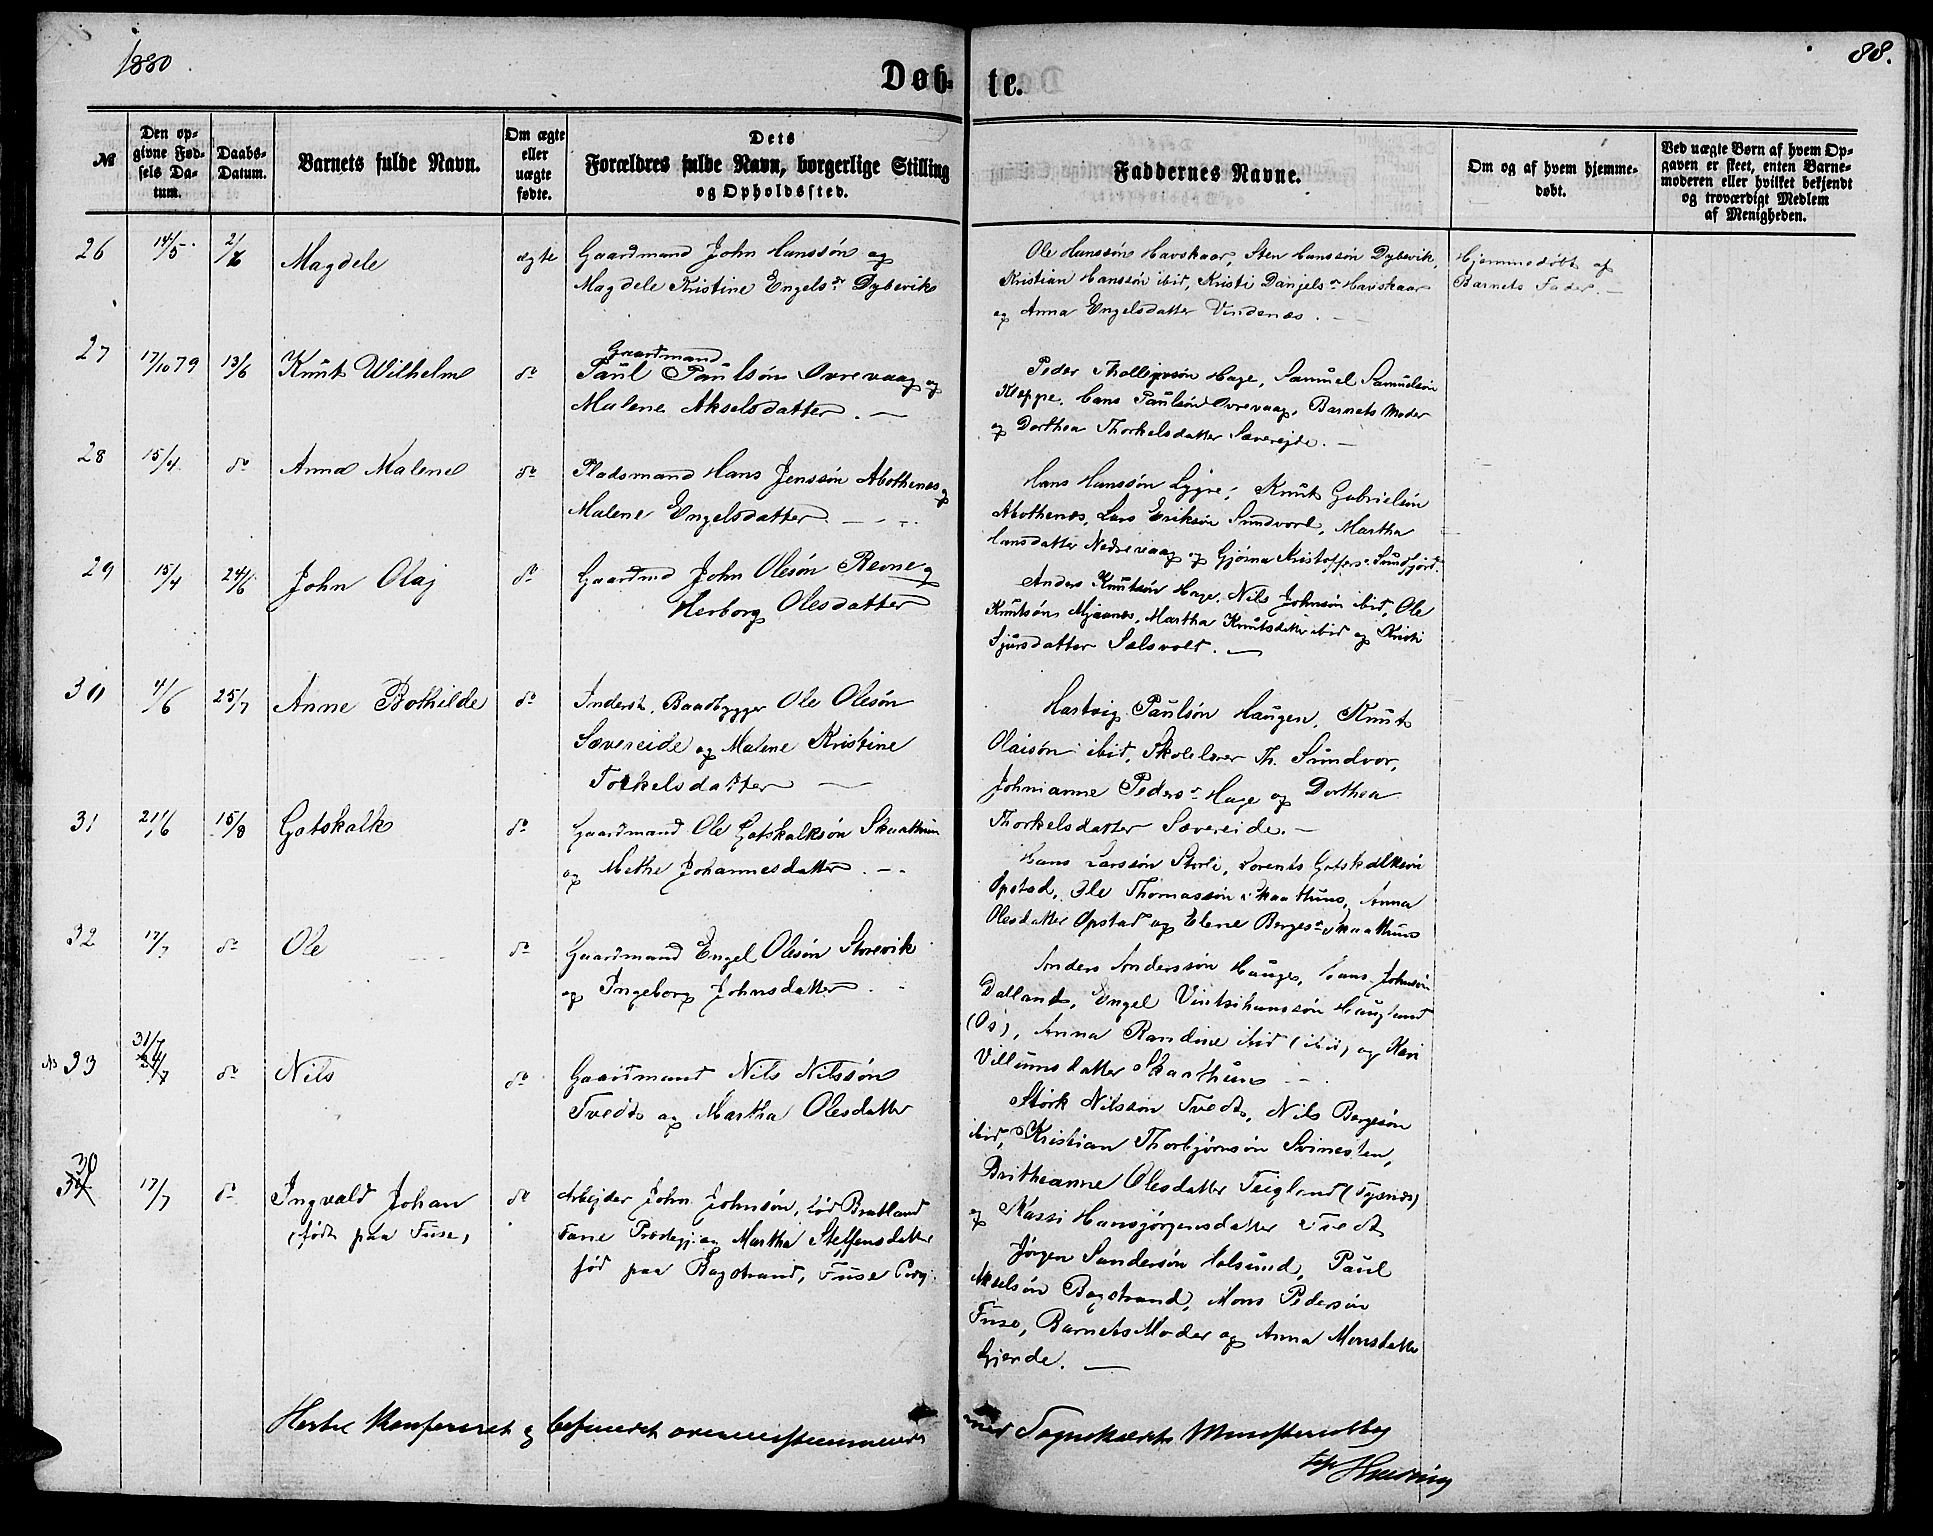 1880
88.
Døb- te.
№
Den opgivne Fødsels Datum.
Daabs-Datum.
Barnets fulde Navn.
Om ægte eller uægte fødte.
Dets Forældres fulde Navn, borgerlige Stilling og Opholdssted.
Faddernes Navne.
Om og af hvem hjemmedøbt.
Ved uægte Børn af hvem Opgaven er skeet, enten Barnemoderen eller hvilket bekjendt og troværdigt Medlem af Menigheden.
26 14/5 2/6 Magdele ægte Gaardmand John Hanssøn og
Magdele Kristine Engelsdr Dybevik
Ole Hanssøn Havskaar, Sten Hanssøn Dybevik,
Kristian Hanssøn ibid, Kristi Danjelsdr Havskaar
og Anna Engelsdatter Vindenæs. —
Hjemmedøbt af
Barnets Fader. —
27 17/10 79 13/6 Knut Wilhelm do Gaardmand
Paul Paulsøn Øvrevaag og
Malene Akselsdatter. —
Peder Thollevsøn Hage, Samuel Samuelsøn
Kleppe, Hans Paulsøn Øvrevaag, Barnets Moder
og Dorthea Thorkelsdatter Sævereide. —
28 15/4 do Anna Malene do Pladsmand Hans Jenssøn Abothenæs og
Malene Engelsdatter. — — —
Hans Hanssøn Lygre, Knut Gabrielsøn
Abothenæs, Lars Eriksøn Sundvorl, Martha
Hansdatter Nedrevaag og Gjørna Kristoffersdr Sundfjord.
29 15/4 24/6 John Olaj do Gaardmd John Olesøn Revne og
Herborg Olesdatter
Anders Knutsøn Hage, Nils Johnsøn ibid, Ole
Knutsøn Mjaanes, Martha Knutsdatter ibid og Kristi
Sjursdatter Salsvolt. —
30 4/6 25/7 Anne Bothilde do Inderst, Baadbygger Ole Olesøn
Sævereide og Malene Kristine
Torkelsdatter —
Hartvig Paulsøn Haugen, Knut
Olaisøn ibid, Skolelærer Th. Sundvor,
Johnianne Pedersdr Hage og Dorthea
Thorkelsdatter Sævereide. —
31 21/6 15/8 Gotskalk do Gaardmand Ole Gotskalksøn Skaathun
og Methe Johannesdatter. —
Hans Larssøn Storli, Lorents Gotskalksøn
Opstad, Ole Thomassøn Skaathun, Anna
Olesdatter Opstad og Elene Bergesdr Skaathun
32 17/7 do Ole do Gaardmand Engel Olesøn Storevik
og Ingeborg Johnsdatter.
Anders Anderssøn Hauge, Hans Johnsøn
Dalland, Engel Hanssøn Haugland
(Os), Anna Randine ibid (ibid) og Kari
Villumsdatter Skaathun —
No 33 31/7 24/7 do Nils do Gaardmand Nils Nilssøn
Tvedt og Martha Olesdatter
Størk Nilssøn Tvedt, Nils Bergesøn
ibid, Kristian Thorbjørnsøn Svinesten,
Britheanne Olesdatter Teigland (Tysnæs)
og Massi Hansjørgensdatter Tvedt
30 34 17/7 do Ingvald Johan
(født paa Fuse)
do Arbejder John Johnsøn, fød Bratland
Fane Prestegj. og Martha Steffensdatter
fød paa Bogstrand, Fuse Prgj.
Jørgen Sandersøn Holsund, Paul
Akselsøn Bogstrand, Mons Pedersøn
Fuse, Barnets Moder og Anna Monsdatter
Gjerde. —
Hertil konfereret og befundet overensstemmende med Sognekaldets Ministerialbog